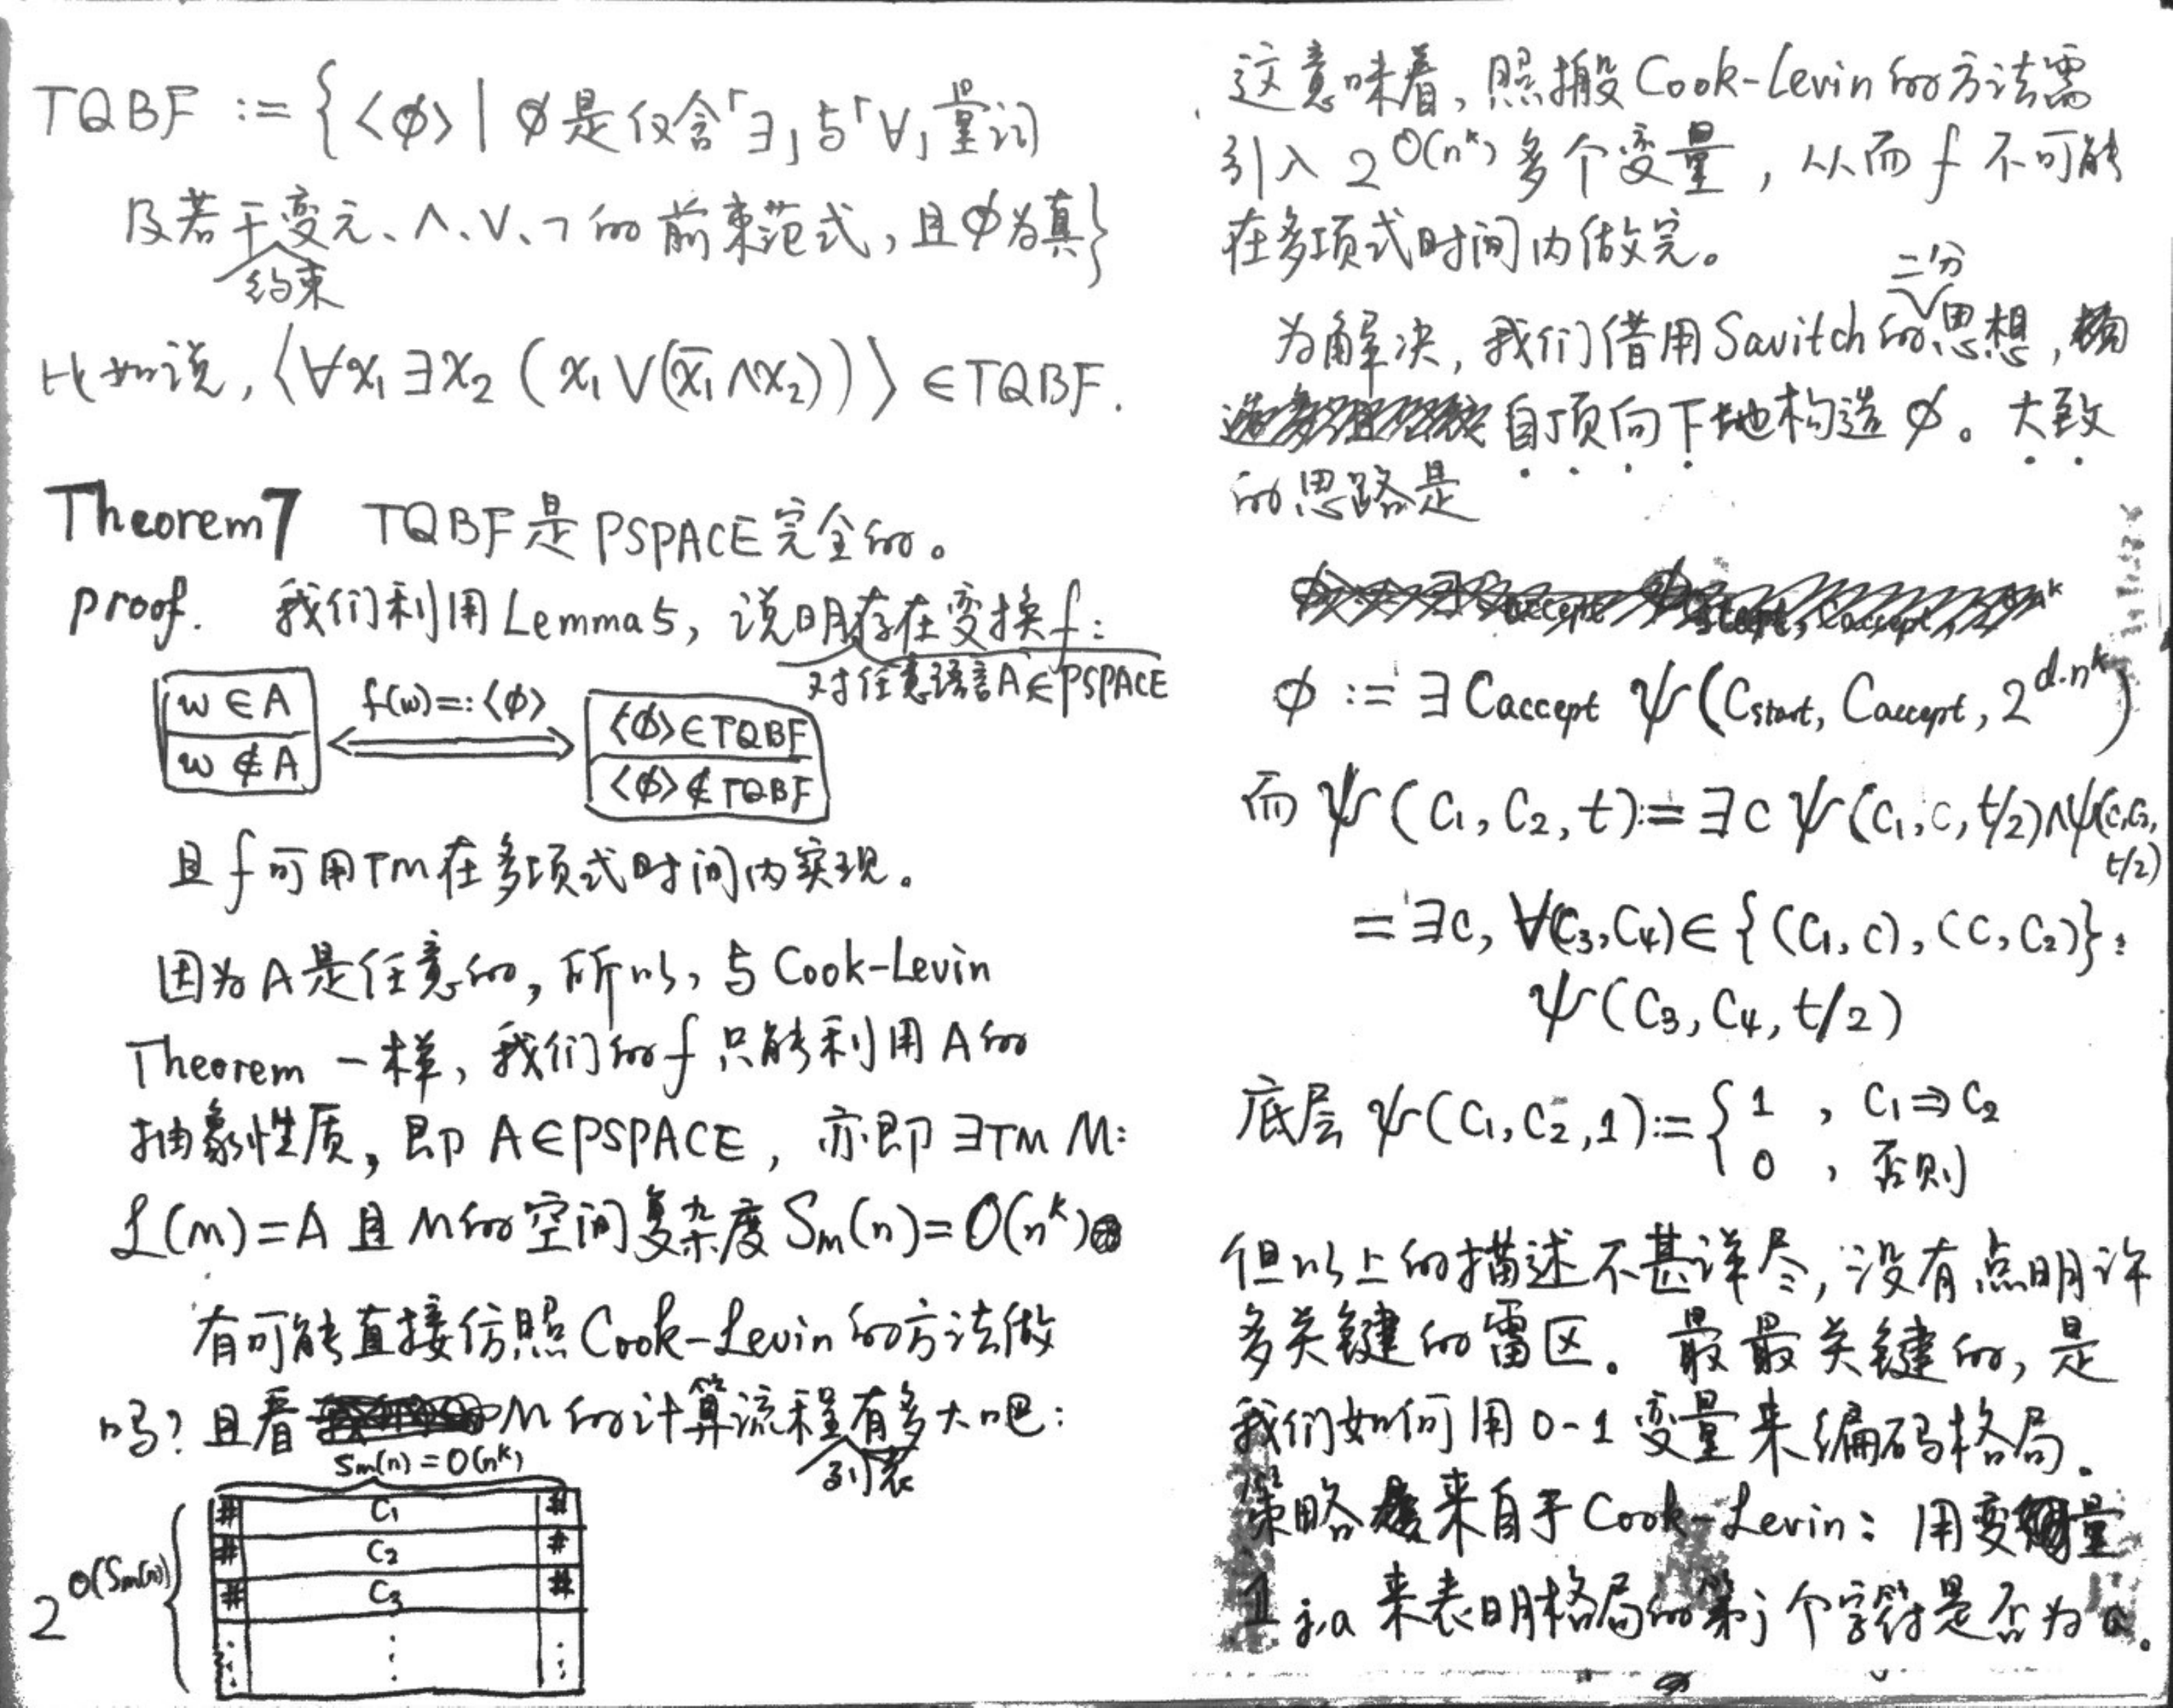 TQBF := {<φ> | φ是仅含「∃」与「∀」量词
及若干约束变元、∧、∨、¬的前束范式,且φ为真}
比如说,〈∀x₁∃x₂(x₁∨(x̄₁∧x₂))〉∈TQBF.
Theorem 7 TQBF是PSPACE完全的。
proof. 我们利用Lemma 5,说明存在变换f:
对任意语言A∈PSPACE
w∈A f(w)=:<φ> <φ>∈TQBF
w∉A <φ>∉TQBF
且f可用TM在多项式时间内实现。
因为A是任意的,所以,与Cook-Levin
Theorem一样,我们的f只能利用A的
抽象性质,即A∈PSPACE,亦即∃TM M:
ℒ(M)=A且M的空间复杂度S_M(n)=O(n^k)
有可能直接仿照Cook-Levin的方法做
吗?且看M的计算流程列表有多大吧:
S_M(n)=O(n^k)
# C₁ #
# C₂ #
2^O(S_M(n)) # C₃ #
⋮ ⋮ ⋮
这意味着,照搬Cook-Levin的方法需
引入2^O(n^k)多个变量,从而f不可能
在多项式时间内做完。
为解决,我们借用Savitch的二分思想,
自顶向下地构造φ。大致
的思路是
φ := ∃C_accept ψ(C_start, C_accept, 2^{d·n^k})
而ψ(C₁,C₂,t):=∃C ψ(C₁,C,t/2)∧ψ(C,C₂,
t/2)
=∃C, ∀(C₃,C₄)∈{(C₁,C),(C,C₂)}:
ψ(C₃,C₄,t/2)
底层ψ(C₁,C₂,1):={1 , C₁⇒C₂
0 , 否则
但以上的描述不甚详尽,没有点明许
多关键的雷区。最最关键的,是
我们如何用0-1变量来编码格局.
策略来自于Cook-Levin:用变量
1_{j,a}来表明格局的第j个字符是否为a。